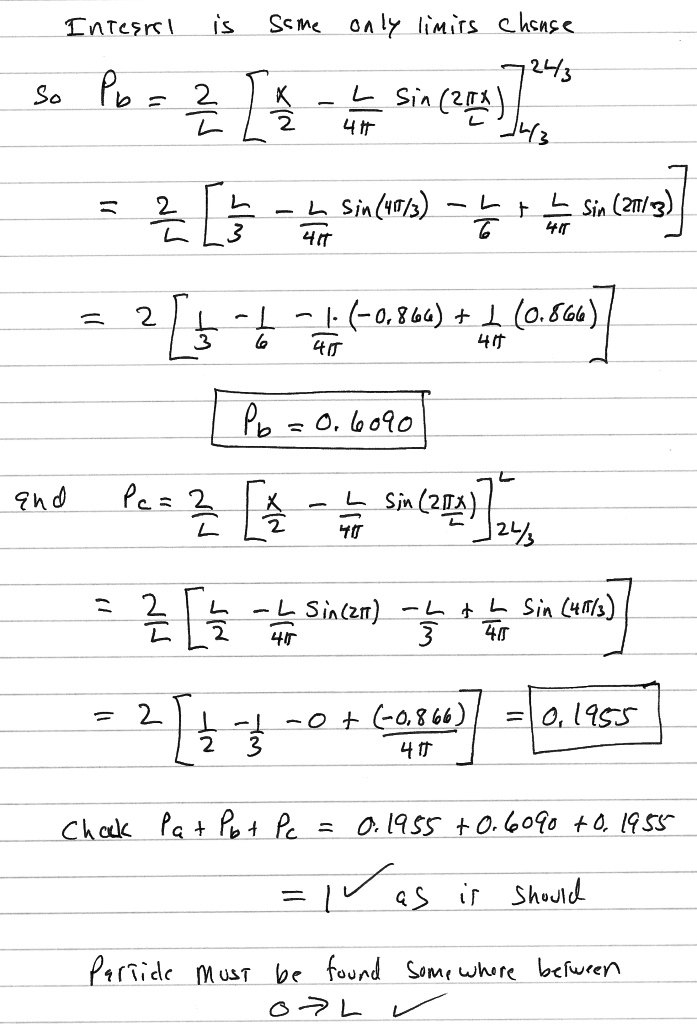 Integral is same only limits change
So P_b = 2/L [ x/2 - L/4π Sin(2πx/L) ]_{L/3}^{2L/3}
= 2/L [ L/3 - L/4π Sin(4π/3) - L/6 + L/4π Sin(2π/3) ]
= 2 [ 1/3 - 1/6 - 1/4π · (-0.866) + 1/4π (0.866) ]
P_b = 0.6090
and P_c = 2/L [ x/2 - L/4π Sin(2πx/L) ]_{2L/3}^{L}
= 2/L [ L/2 - L/4π Sin(2π) - L/3 + L/4π Sin(4π/3) ]
= 2 [ 1/2 - 1/3 - 0 + (-0.866)/4π ] = 0.1955
Check Pa + Pb + Pc = 0.1955 + 0.6090 + 0.1955
= 1 ✓ as it should
Particle must be found somewhere between
0 → L ✓